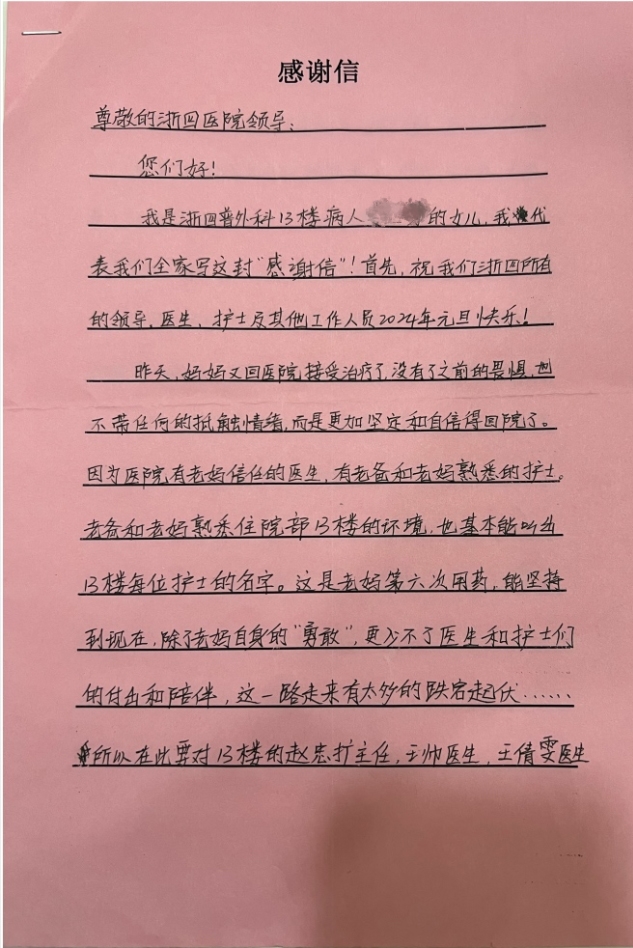 感谢信
尊敬的浙四医院领导：
您们好！
我是浙四普外科13楼病人的女儿，我代
表我们全家写这封“感谢信”！首先，祝我们浙四所有
的领导、医生、护士及其他工作人员2024年元旦快乐！
昨天，妈妈又回医院接受治疗了，没有了之前的畏惧，也
不带任何的抵触情绪，而是更加坚定和自信得回院了。
因为医院有老妈信任的医生，有老爸和老妈熟悉的护士。
老爸和老妈熟悉住院部13楼的环境，也基本能叫出
13楼每位护士的名字。这是老妈第六次用药，能坚持
到现在，除了老妈自身的“勇敢”，更少不了医生和护士们
的付出和陪伴，这一路走来有太多的跌宕起伏……
所以在此要对13楼的赵忠扩主任，王帅医生，王倩雯医生